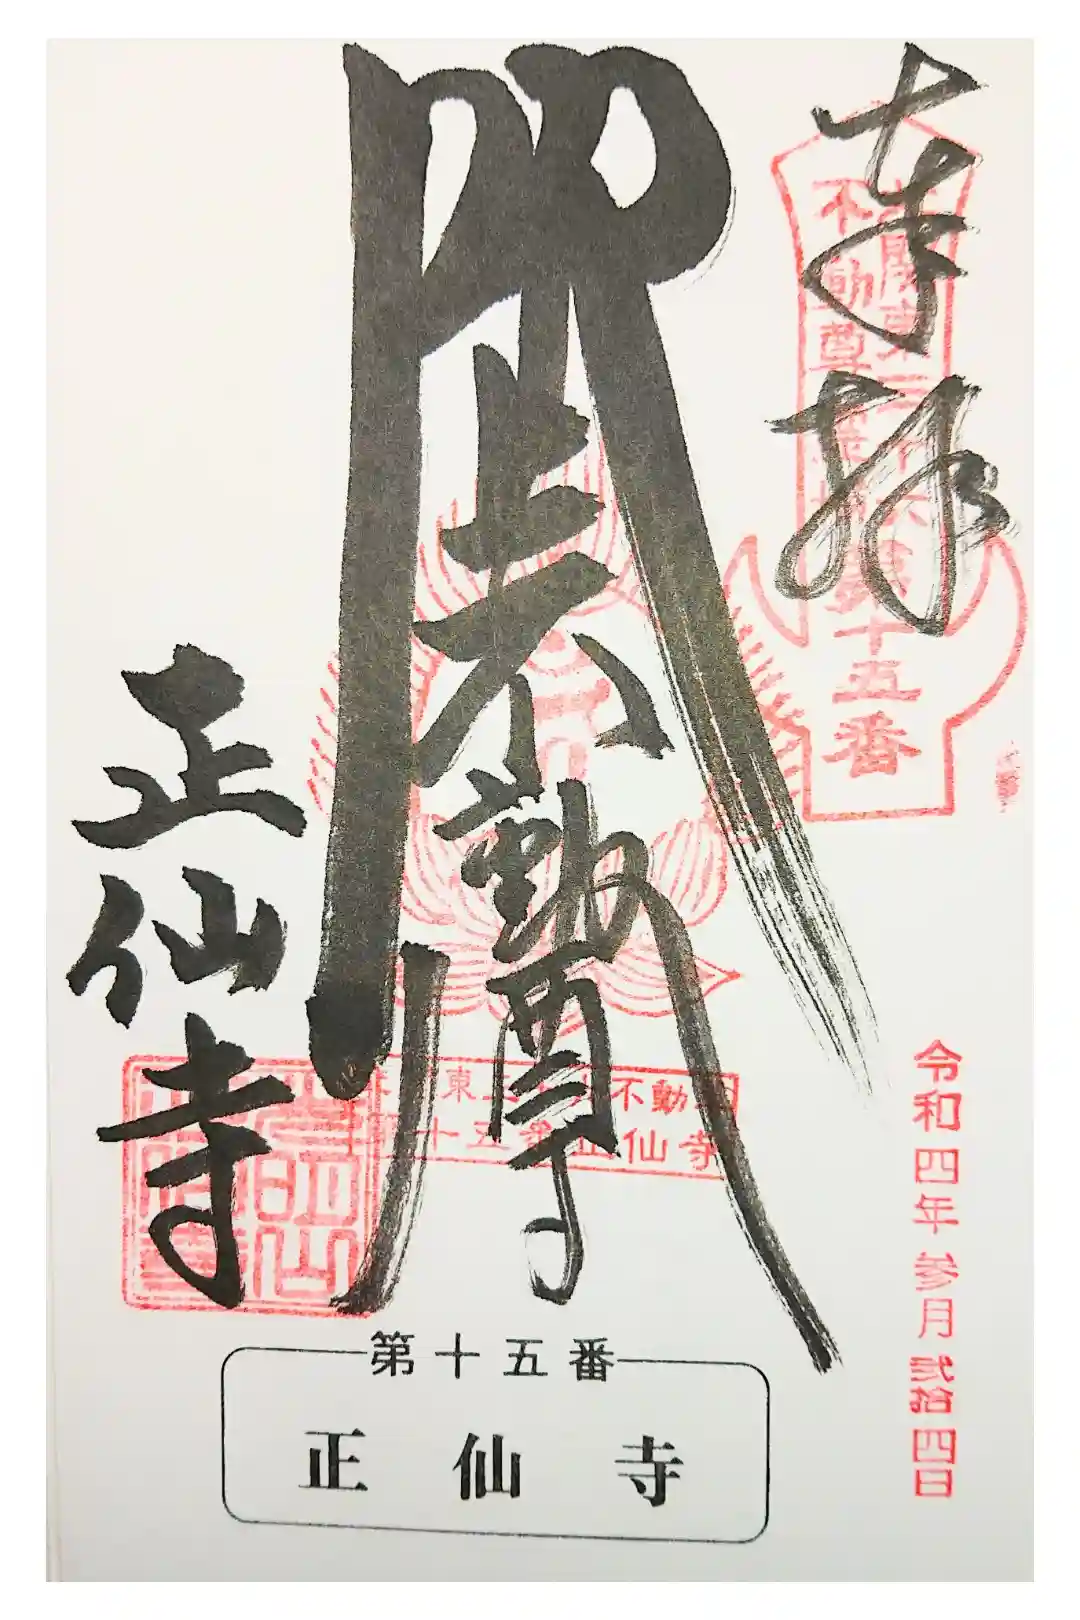 奉拝
北関東三十六
不動尊霊場
第十五番
令和四年参月弐拾四日
不動尊
正仙寺
北関東三十六不動
第十五番正仙寺
第十五番
正仙寺